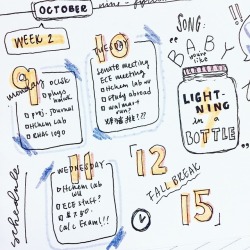 OCTOBER
WEEK 2
SONG:
"BABY
you're
like
LIGHT-
NING
in a
BOTTLE"
monday
9
phys
proj. journal
Hchem Lab
RHAS logo
TUESDAY
10
senate meeting
ECE meeting
Hchem lab
study abroad
walmart
run?
WEDNESDAY
11
Hchem lab
ECE stuff?
Calc Exam!!!
12
FALL BREAK
15
schedule